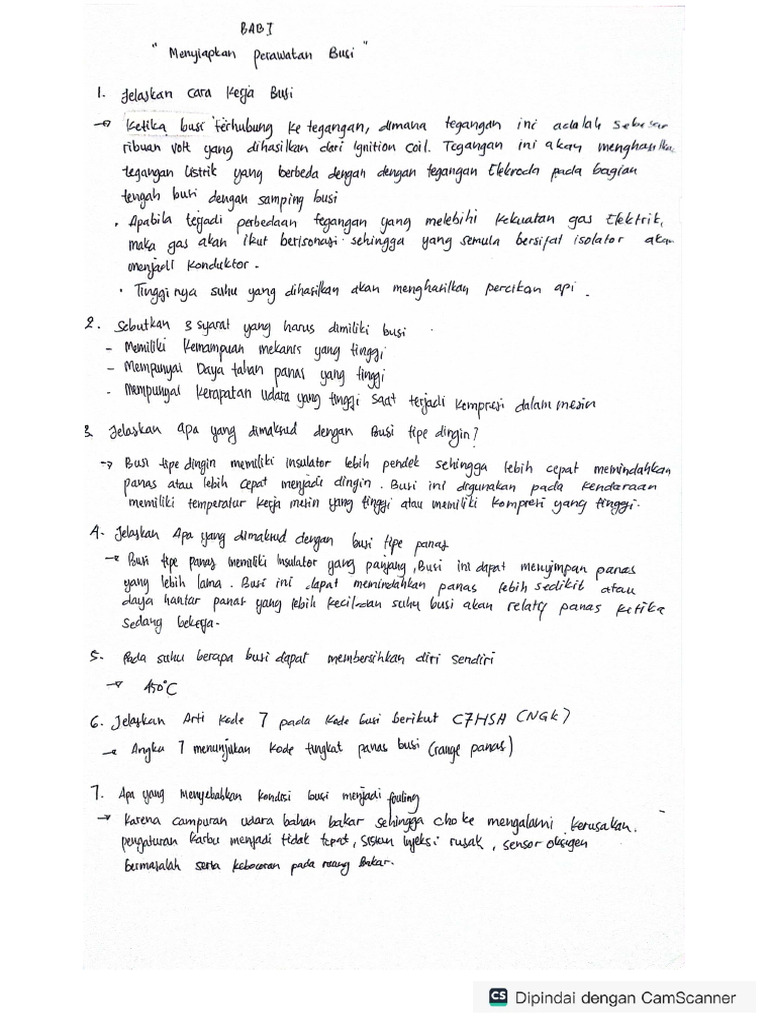 BAB I
" Menyiapkan Perawatan Busi "
1. Jelaskan cara kerja Busi
→ Ketika busi terhubung ke tegangan, dimana tegangan ini adalah sebesar
ribuan volt yang dihasilkan dari Ignition coil. Tegangan ini akan menghasilka
tegangan Listrik yang berbeda dengan dengan tegangan Elekroda pada bagian
tengah busi dengan samping busi
• Apabila terjadi perbedaan tegangan yang melebihi kekuatan gas Elektrik,
maka gas akan ikut berisonasi sehingga yang semula bersifat isolator akan
menjadi konduktor.
• Tingginya suhu yang dihasilkan akan menghasilkan percikan api.
2. Sebutkan 3 syarat yang harus dimiliki busi
- Memiliki kemampuan mekanis yang tinggi
- Mempunyai Daya tahan panas yang tinggi
- Mempunyai kerapatan udara yang tinggi saat terjadi kompresi dalam mesin
3. Jelaskan apa yang dimaksud dengan Busi tipe dingin?
→ Busi tipe dingin memiliki insulator lebih pendek sehingga lebih cepat memindahkan
panas atau lebih cepat menjadi dingin. Busi ini digunakan pada kendaraan
memiliki temperatur kerja mesin yang tinggi atau memiliki kompresi yang tinggi.
4. Jelaskan Apa yang dimaksud dengan busi tipe panas
→ Busi tipe panas memiliki insulator yang panjang, Busi ini dapat menyimpan panas
yang lebih lama. Busi ini dapat memindahkan panas lebih sedikit atau
daya hantar panas yang lebih kecil dan suhu busi akan relatif panas ketika
sedang bekerja.
5. Pada suhu berapa busi dapat membersihkan diri sendiri
→ 450°C
6. Jelaskan Arti kode 7 pada kode busi berikut C7HSA (NGK)
→ Angka 7 menunjukan kode tingkat panas busi (range panas)
7. Apa yang menyebabkan kondisi busi menjadi fouling
→ Karena campuran udara bahan bakar sehingga choke mengalami kerusakan.
pengaturan karbu menjadi tidak tepat, sistem injeksi rusak, sensor oksigen
bermasalah serta kebocoran pada ruang Bakar.
CS Dipindai dengan CamScanner